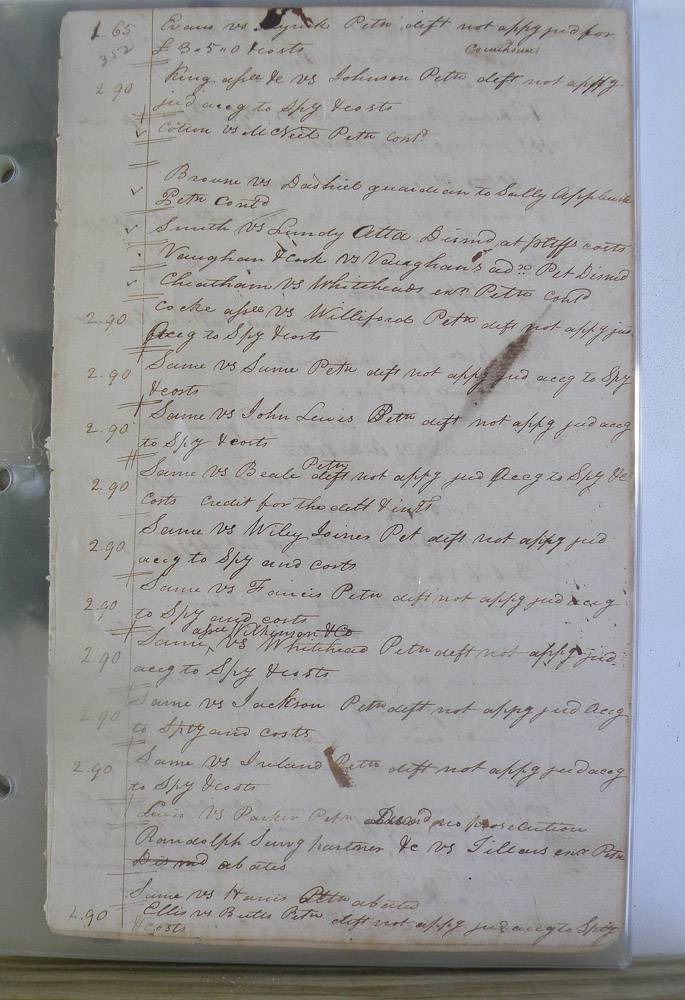 1.65 Evans vs Petn deft not appg jud for
352 £ 3"5"0 & costs
2.90 King assee &c vs Johnson Petn deft not appg
jud accg to Spy & costs
Cotton vs McNeil Petn contd
Browne vs Dashiel guardian to Sally Applewhite
Petn Contd
Smith vs Lundy Atta Dismd at ptiffs costs
Vaughan & Cook vs Vaughan's adr Pet Dismd
Cheatham vs Whiteheads exr Petn Contd
2.90 Cocke assee vs Williford Petn deft not appg jud
Accg to Spy & costs
2.90 Same vs Same Petn deft not appg jud accg to Spy
& costs
2.90 Same vs John Lewis Petn deft not appg jud accg
to Spy & costs
2.90 Same vs Beale Petn deft not appg jud Accg to Spy &c
Costs credit for the debt & intt
2.90 Same vs Wiley Joiner Pet deft not appg jud
accg to Spy and costs
2.90 Same vs Francis Petn deft not appg jud accg
to Spy and costs
2.90 Same assee Wilkinson & Co vs Whitehead Petn deft not appg jud
accg to Spy & costs
2.90 Same vs Jackson Petn deft not appg jud Accg
to Spy and costs
2.90 Same vs Ireland Petn deft not appg jud accg
to Spy & costs
Lewis vs Parker Petn Dismd no prosecution
Randolph Survg partner &c vs exr Petn
Dismd abates
Same vs Harris Attn abates
2.90 Ellis vs Butts Petn deft not appg jud accg to Spy
& costs